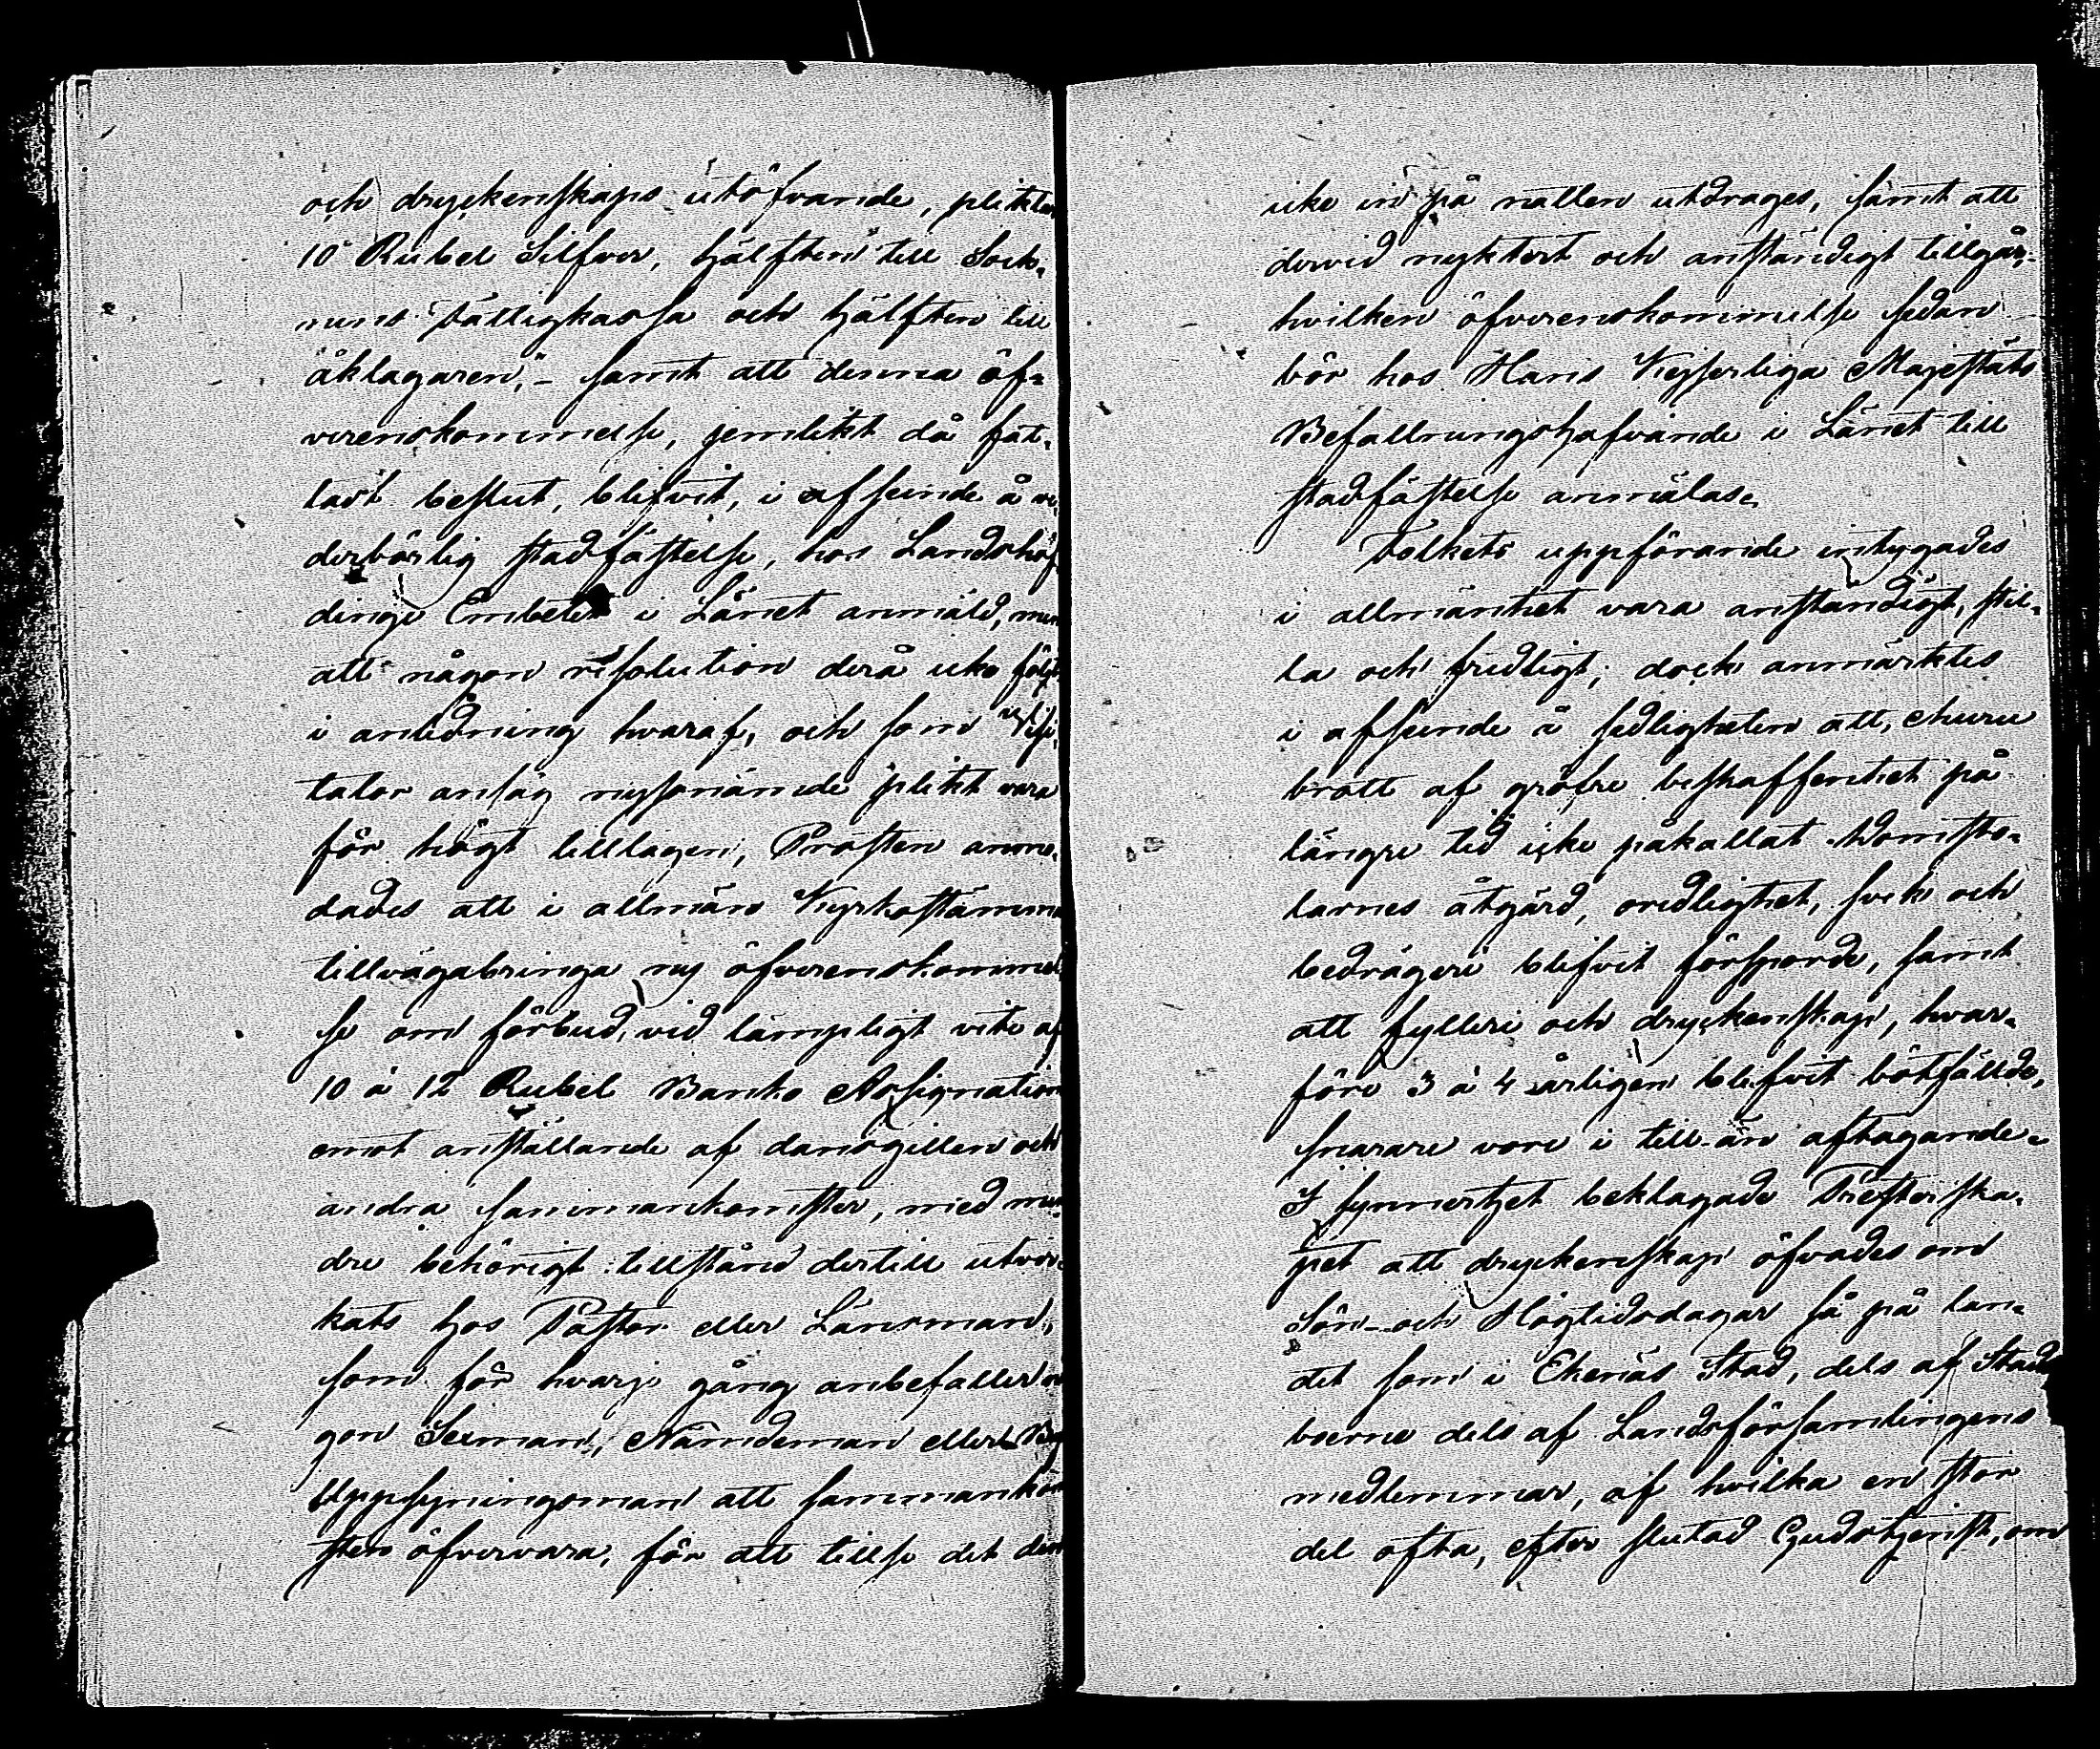 och dryckenskaps utöfvande, plikta
10 Rubel Silfver, hälften till Sock-
nens Fattigkassa och hälften till
åklagaren,- samt att denna öf-
verenskommelse, jemlikt då fat-
tadt beslut, blifvit, i afseende å ve-
derbörlig stadfästelse, hos Landshöf
dinge Embetet i Länet anmäld, men
att någon resolution derå icke följt
i anledning hvaraf, och som Visi-
tator ansåg nyssnämde plikt vara
för högt tilltagen, Prosten anmo-
dades att i allmän Kyrkostämma
tillvägabringa ny öfverenskommel
se om förbud, vid lämpligt vite af
10 á 12 Rubel Banko Assignation
emot anställande af dansgillen och
andra sammankomster, med min
dre behörigt tillstånd dertill utver-
kats hos Pastor eller Länsman,
som för hvarje gång anbefaller nå
gon Sexman, Nämdeman eller By
Uppsyningsman att sammankom
sten öfvervara, för att tillse det den
icke in på natten utdrages, samt att
dervid nyktert och anständigt tillgår,-
hvilken öfverenskommelse sedan
bör hos Hans Kejserliga Majestäts
Befallningshafvande i Länet till
stadfästelse anmälas.
Folkets uppförande intygades
i allmänhet vara anständigt, stil-
la och fredligt; dock anmärktes
i afseende å sedligheten att, ehuru
brott af gröfre beskaffenhet på
längre tid icke påkallat Domsto-
larnes åtgärd, oredlighet, svek och
bedrägeri blifvit försporde, samt
att fylleri och dryckenskap, hvar-
före 3 á 4 årligen blifvit bötfällde,
snarare vore i till- än aftagande.
I synnerhet beklagade Presterska-
pet att dryckenskap öfvades om
Sön- och Högtidsdagar så på lan-
det som i Ekenäs Stad, dels af Stads
boerne dels af Landsförsamlingens
medlemmar, af hvilka en stor
del ofta, efter slutad Gudstjenst, om